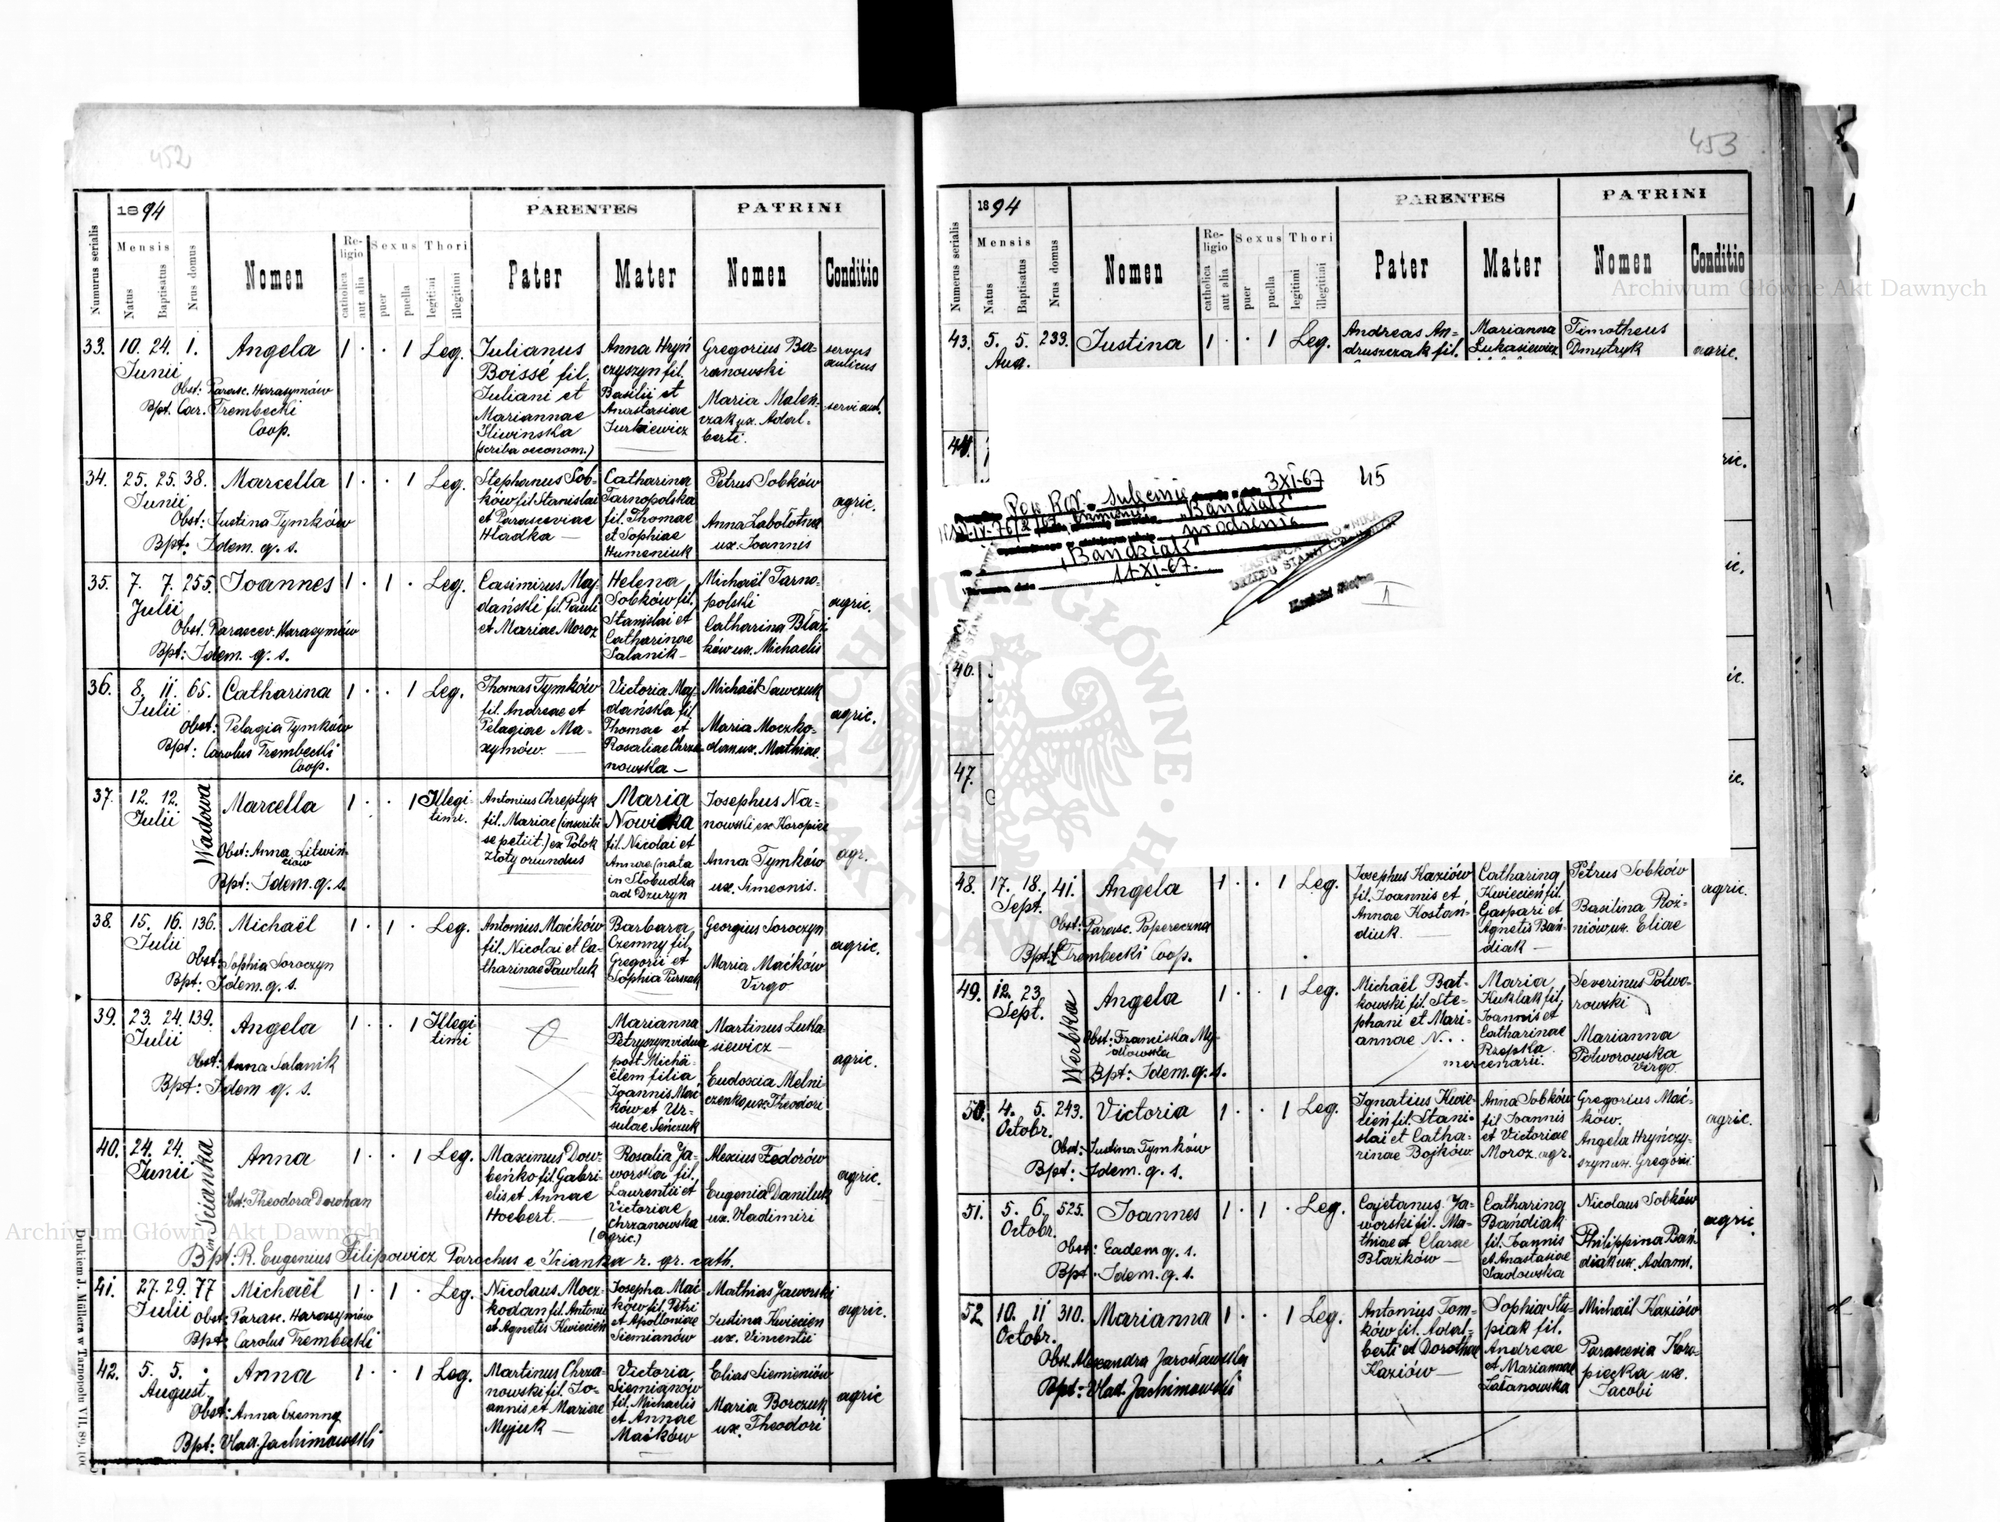 452
1894
PARENTES
PATRINI
Numerus serialis
Mensis
Natus
Baptisatus
Nrus domus
Nomen
Religio
catholica
aut alia
Sexus
puer
puella
Thori
legitimi
illegitimi
Pater
Mater
Nomen
Conditio
33. 10. 24. 1. Angela 1 . . 1 Leg.
Junii
Obst: Parasc. Harasymów
Bpt. Car. Trembecki
Coop.
Julianus
Boissé fil.
Juliani et
Mariannae
Kliwinska
(scriba oeconom.)
Anna Hryń
czyszyn fil.
Basilii et
Anastasiae
Jurkiewicz
Gregorius Ba-
ranowski
Maria Malen-
czak ux. Adal-
berti.
servus
aulicus
servi aul.
34. 25. 25. 38. Marcella 1 . . 1 Leg.
Junii
Obst: Justina Tymków
Bpt: Idem. q. s.
Stephanus Sob-
ków fil. Stanislai
et Parasceviae
Hladka —
Catharina
Tarnopolska
fil. Thomae
et Sophiae
Humeniuk
Petrus Sobków
Anna Zabołotna
ux. Joannis
agric.
35. 7. 7. 255. Joannes 1 . 1 . Leg.
Julii
Obst. Paracev. Harasymów
Bpt: Idem. q. s.
Casimirus Maj-
dański fil. Pauli
et Mariae Moroz
Helena
Sobków fil.
Stanislai et
Catharinae
Salanik —
Michaël Tarno-
polski
Catharina Błaż
ków ux. Michaelis
agric.
36. 8. 11. 65. Catharina 1 . . 1 Leg.
Julii
Obst: Pelagia Tymków
Bpt: Carolus Trembecki
Coop.
Thomas Tymków
fil. Andreae et
Pelagiae Ma-
xymów. —
Victoria Maj-
dańska fil.
Thomae et
Rosaliae Chrza-
nowska —
Michaël Sawczuk
Maria Moczko-
dan ux. Mathiae
agric.
37. 12. 12. Wadowa Marcella 1 . . 1 Illegi-
Julii
timi.
Obst: Anna Litwin-
ciów
Bpt: Idem. q. s.
Antonius Chreptyk
fil. Mariae (inscribi
se petiit) ex Potok
Złoty oriundus
Maria
Nowicka
fil. Nicolai et
Annae (nata
in Słobudka
ad Dzuryn
Josephus Na-
nowski ex Koropiec
Anna Tymków
ux. Simeonis.
agr.
38. 15. 16. 136. Michaël 1 . 1 . Leg.
Julii
Obst: Sophia Soroczyn
Bpt: Idem. q. s.
Antonius Maćków
fil. Nicolai et Ca-
tharinae Pawluk
Barbara
Czemny fil.
Gregorii et
Sophia
Georgius Soroczyn
Maria Maćków
Virgo
agric.
39. 23. 24. 139. Angela 1 . . 1 Illegi
Julii
timi
Obst: Anna Salanik
Bpt: Idem q. s.
Marianna
Petryszyn vidua
post Micha-
ëlem filia
Joannis Mać
ków et Ur-
sulae Senczuk
Martinus Luka-
siewicz —
Eudoscia Melni
czenko ux. Theodori
agric.
40. 24. 24. in Scianka Anna 1 . . 1 Leg.
Junii
Obst: Theodora Dowhan
Maximus Dow-
beńko fil. Gabri-
elis et Annae
Hoebert. —
Rosalia Ja-
worska fil.
Laurentii et
Victoriae
Chrzanowska
(agric.)
Alexius Fedorów
Eugenia Daniluk
ux. Vladimiri
agric.
Bpt: R. Eugenius Filipowicz Parochus e Scianka r. gr. cath.
41. 27. 29. 77 Michaël 1 . 1 . Leg.
Julii
Obst: Parasc. Harasymów
Bpt: Carolus Trembecki
Nicolaus Mocz-
kodan fil. Antonii
et Agnetis Kwiecien
Josepha Mać
ków fil. Petri
et Apolloniae
Siemianów
Mathias Jaworski
Justina Kwiecien
ux. Vincentii
agric.
42. 5. 5. . Anna 1 . . 1 Leg.
August.
Obst: Anna Czemny
Bpt: Vlad. Jachimowski
Martinus Chrza-
nowski fil. Jo-
annis et Mariae
Myjuk —
Victoria
Siemianów
fil. Michaelis
et Annae
Maćków
Elias Siemieniów
Maria Borczuk
ux. Theodori
agric
Drukiem J. Müllera w Tarnopolu VII. 89.
453
1894
PARENTES
PATRINI
Numerus serialis
Mensis
Natus
Baptisatus
Nrus domus
Nomen
Religio
catholica
aut alia
Sexus
puer
puella
Thori
legitimi
illegitimi
Pater
Mater
Nomen
Conditio
43. 5. 5. 239. Justina 1 . . 1 Leg.
Aug.
Andreas An-
druszczak fil.
Marianna
Łukasiewicz
Timotheus
Dmytryk
agric.
44.
3 XI-67
45
Bandiak
"Bandziak"
17 XI-67.
46.
47.
48. 17. 18. 41. Angela 1 . . 1 Leg.
Sept.
Obst: Parasc. Popereczna
Bpt: Trembecki Coop.
Josephus Kaziów
fil. Joannis et
Annae Kostań-
diuk. —
Catharina
Kwiecień fil.
Gaspari et
Agnetis Bań-
diak —
Petrus Sobków
Basilina Roż-
niów ux. Eliae
agric.
49. 12. 23. Werbka Angela 1 . . 1 Leg.
Sept.
Obst: Franciska My-
dłowska
Bpt: Idem. q. s.
Michaël Bat-
kowski fil. Ste-
phani et Mari-
annae N. .
Maria
Kuklak fil.
Joannis et
Catharinae
Rzepka.
mercenarii.
Severinus Potwo-
rowski
Marianna
Potworowska
Virgo
50. 4. 5. 243. Victoria 1 . . 1 Leg.
Octobr.
Obst: Justina Tymków
Bpt: Idem. q. s.
Ignatius Kwie-
cień fil. Stani-
slai et Catha-
rinae Bojków
Anna Sobków
fil Joannis
et Victoriae
Moroz. agr.
Gregorius Mać-
ków.
Angela Hryńczy-
szyn ux. Gregorii
agric.
51. 5. 6. 525. Joannes 1 . 1 . Leg.
Octobr.
Obst: Eadem q. s.
Bpt: Idem. q. s.
Cajetanus Ja-
worski fil. Ma-
thiae et Clarae
Błażków —
Catharina
Bańdiak
fil. Joannis
et Anastasiae
Sadowska
Nicolaus Sobków
Philippina Bań
diak ux. Adami.
agric
52 10. 11 310. Marianna 1 . . 1 Leg.
Octobr.
Obst. Alexandra Jarosławska
Bpt: Vlad. Jachimowski
Antonius Tom-
ków fil. Adal-
berti et Dorothae
Kaziów —
Sophia Stu-
piak fil.
Andreae
et Mariannae
Łatanowska
Michaël Kaziów
Parascevia Koro-
piecka ux.
Jacobi
Archiwum Główne Akt Dawnych
Archiwum Główne Akt Dawnych